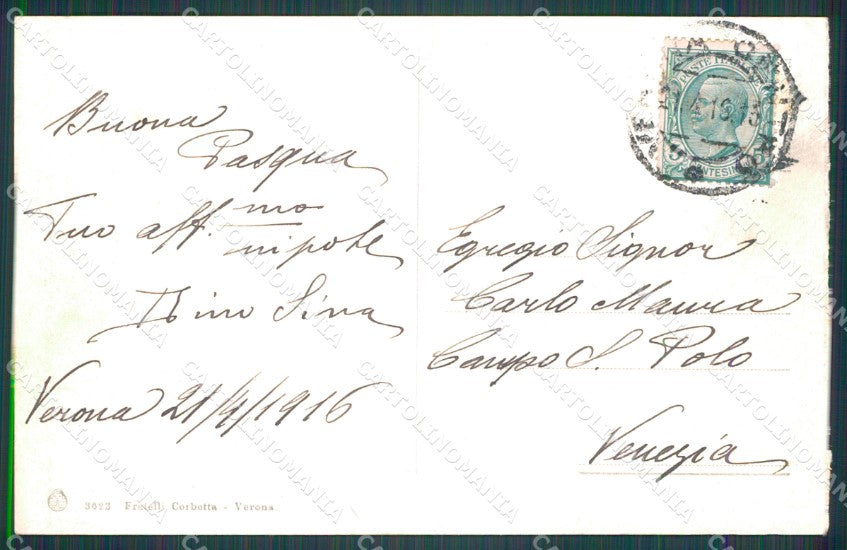 Buona
Pasqua
Tuo aff.mo
nipote
Sina
Verona 21/4/1916
Egregio Signor
Carlo Maura
Campo S. Polo
Venezia
3623 Fratelli Corbetta - Verona
POSTE ITALIANE
CENTESIMI
CARTOLINOMANIA